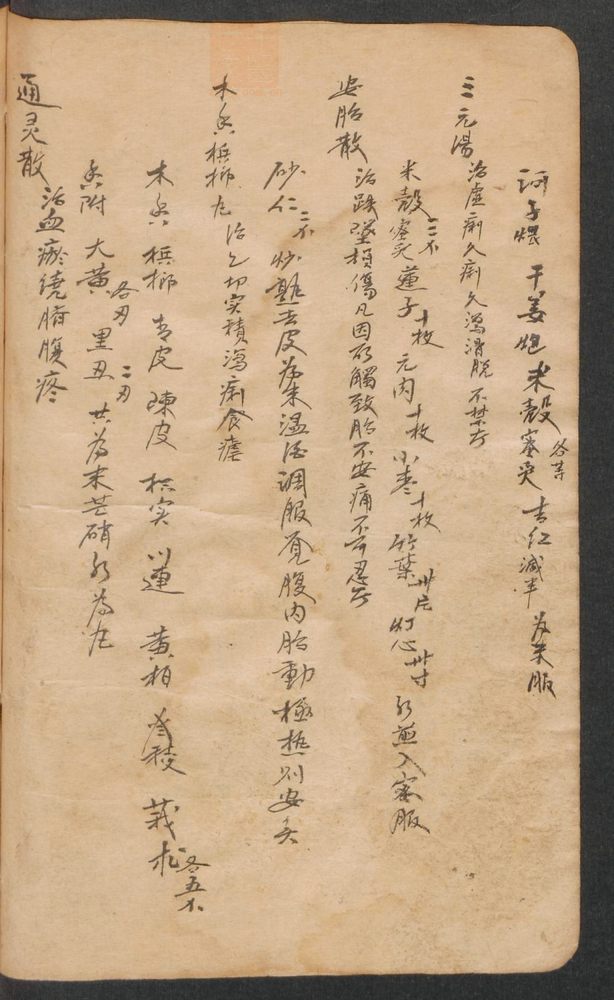 诃子煨 干姜炮 米殼蜜炙 各等 杏仁減半 为末服
三元湯 治虚痢久痢久瀉滑脱不禁方
米殼蜜炙 三个 蓮子十枚 元肉十枚 小枣十枚 竹葉卅片 灯心卅寸 水煎入蜜服
安胎散 治跌墜損傷凡因所觸致胎不安痛不可忍方
砂仁 三个 炒熟去皮为末温酒調服覓腹内胎動極热則安矣
木香梹榔丸 治一切实積瀉痢食瘧
木香 梹榔 青皮 陳皮 枳实 川連 黄柏 三稜 莪朮 各五个
香附 大黄 各刄 黑丑 二刄 共为末芒硝水为丸
通灵散 治血瘀繞臍腹疼